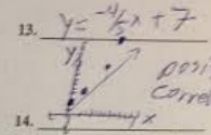 13. y = -4/5x + 7
y
posi
corre
x
14.